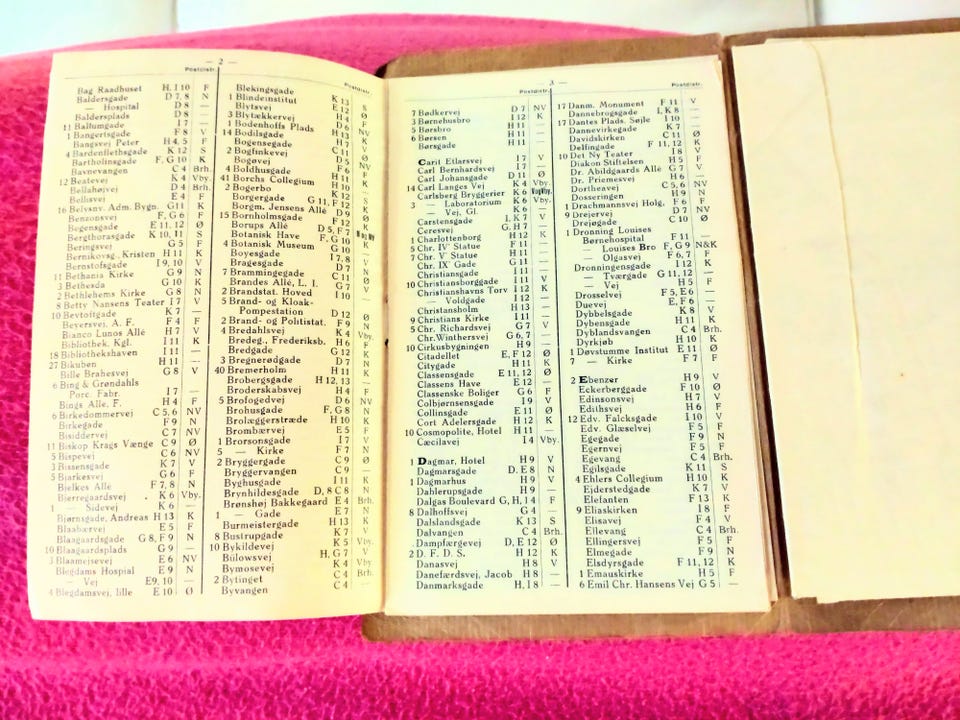 — 2 —
Postdistr.
Bag Raadhuset H, I 10 F
Baldersgade D 7, 8 N
— Hospital D 8 —
Baldersplads D 8 —
11 Ballumgade I 7 —
1 Bangertsgade F 8 V
Bangsvej Peter H 4, 5 F
4 Bardenflethsgade K 12 S
Bartholinsgade F, G 10 K
Bavnevangen C 4 Brh.
12 Beatevej K 4 Vby.
Bellahøjvej D 4 Brh.
Bellsvej E 4 F
16 Belysnv. Adm. Bygn. G 11 K
Benzonsvej F, G 6 F
Begensgade E 11, 12 Ø
Bergthorasgade K 10, 11 S
Beringsvej G 5 F
Bernikovsg. Kristen H 11 K
Bernstofsgade I 9, 10 V
11 Bethania Kirke G 9 N
3 Bethesda G 10 K
2 Bethlehems Kirke G 8 N
8 Betty Nansens Teater I 7 V
10 Bevtoftgade K 7 —
Beyersvej, A. F. F 4 F
Bianco Lunos Allé H 7 V
Bibliothek. Kgl. I 11 K
18 Bibliothekshaven I 11 —
27 Bikuben H 11 —
Bille Brahesvej G 8 V
6 Bing & Grøndahls
Porc. Fabr. I 7 —
Bings Alle, F. H 4 F
6 Birkedommervej C 5, 6 NV
Birkegade F 9 N
Bisiddervej C 7 NV
11 Biskop Krags Vænge C 9 Ø
5 Bispevej C 6 NV
3 Bissensgade K 7 V
5 Bjarkesvej G 6 F
Bjelkes Alle F 7, 8 N
Bjerregaardsvej K 6 Vby.
1 — Sidevej K 6 —
Bjørnsgade, Andreas H 13 K
Blaabærvej E 5 F
Blaagaardsgade G 8, F 9 N
10 Blaagaardsplads G 9 —
3 Blaamejsevej E 6 NV
Blegdams Hospial E 9 N
— Vej E9, 10 —
4 Blegdamsvej, lille E 10 Ø
Postdistr.
Blekingsgade K 13 S
1 Blindeinstitut E 12 Ø
Blytsvej H 4 F
3 Blytækkervej D 6 NV
1 Bodenhoffs Plads
14 Bodilsgade H 13
Bogensegade H 7 V
2 Bogfinkevej C 11 Ø
Bogøvej D 5 N
4 Boldhusgade F 6
41 Borchs Collegium H 11 K
2 Bogerbo H 10
Borgergade G 11, F 12
Borgm. Jensens Allé D 9
15 Bornholmsgade F 12 K
Borups Allé D 5, F 7
Botanisk Have F, G 10
4 Botanisk Museum G 10
Boyesgade I 7, 8 V
Bragesgade D 7 N
7 Brammingegade C 11 Ø
Brandes Allé, L. I. G 7 V
2 Brandstat. Hoved I 10
5 Brand- og Kloak-
Pompestation D 12 Ø
2 Brand- og Politistat. F 9 N
4 Bredahlsvej K 4 Vby.
Bredeg., Frederiksb. H 6 F
Bredgade G 12 K
3 Bregnerødgade D 7 N
40 Bremerholm H 11 K
Brobergsgade H 12, 13 —
Broderskabsvej H 4 F
5 Brofogedvej D 6 NV
Brohusgade F, G 8 N
Brolæggerstræde H 10 K
Brombærvej E 5 F
1 Brorsonsgade I 7 V
5 — Kirke F 7 N
2 Bryggergade C 9 Ø
Bryggervangen C 9 —
Byghusgade I 11 K
Brynhildesgade D, 8 C 8 N
Brønshøj Bakkegaard E 4 Brh.
1 — Gade E 7 N
Burmeistergade H 13 K
8 Bustrupgade K 7 V
10 Bykildevej K 5 Vby.
Bülowsvej H, G 7 V
Bymosevej K 4 Vby.
2 Bytinget C 4 Brh.
Byvangen C 4 —
— 3 —
Postdistr.
7 Bødkervej D 7 NV
3 Børnehusbro I 12 K
5 Børsbro H 11 —
6 Børsen H 11 —
Børsgade H 11 —
Carit Etlarsvej I 7 V
Carl Bernhardsvej I 7 —
Carl Johansgade D 11 Ø
14 Carl Langes Vej K 4 Vby.
Carlsberg Bryggerier K 6
3 — Laboratorium K 6 Vby.
— Vej, Gl. K 6 —
Carstensgade I, K 7 V
Ceresvej G, H 7 —
1 Charlottenborg H 12 K
5 Chr. IV' Statue F 11 —
7 Chr. V' Statue H 11 —
Chr. IX' Gade G 11 —
Christiansgade I 11 —
10 Christiansborggade I 11 V
Christianshavns Torv I 12 K
— Voldgade I 12 —
Christansholm H 13 —
9 Christians Kirke I 11 —
5 Chr. Richardsvej G 7 V
Chr.Winthersvej G, 6,7 —
10 Cirkusbygningen H 9 —
Citadellet E, F 12 Ø
Citygade H 11 K
Classensgade E 11, 12 Ø
Classens Have E 12 —
Classenske Boliger G 6 F
Colbjørnsensgade I 9 V
Collinsgade E 11 Ø
Cort Adelersgade H 12 K
10 Cosmopolite, Hotel H 11 —
Cæciliavej I 4 Vby.
1 Dagmar, Hotel H 9 V
Dagmarsgade D, E 8 N
1 Dagmarhus H 9 V
Dahlerupsgade H 9 —
Dalgas Boulevard G, H, I 4 F
8 Dalhoffsvej G 4 —
Dalslandsgade K 13 S
Dalvangen C 4 Brh.
Dampfærgevej D, E 12 Ø
2 D. F. D. S. H 12 K
Danasvej H 8 V
Danefærdsvej, Jacob H 8 —
Danmarksgade H, I 8 —
Postdistr.
17 Danm. Monument F 11 V
Dannebrogsgade I, K 8 —
17 Dantes Plads. Søjle I 10 —
Dannevirkegade K 7 —
Davidskirken C 11 Ø
Delfingade F 11, 12 K
10 Det Ny Teater I 8 V
Diakon Stiftelsen H 5 F
Dr. Abildgaards Allé G 7 V
Dr. Priemesvej H 6 —
Dortheavej C 5, 6 NV
Dosseringen H 9 N
1 Drachmannsvej Holg. F 6 F
9 Drejervej D 7 NV
Drejøgade C 10 Ø
1 Dronning Louises
Børnehospital F 11 —
— Louises Bro F, G 9 N&K
— Olgasvej F 6, 7 F
Dronningensgade I 12 K
— Tværgade G 11, 12 —
— Vej H 5 F
Drosselvej F 5, E 6 —
Duevej E, F 6 —
Dybbelsgade K 8 V
Dybensgade H 11 K
Dyblandsvangen C 4 Brh.
Dyrkjøb H 10 K
1 Døvstumme Institut E 11 Ø
7 — Kirke F 7 F
2 Ebenzer H 9 V
Eckerberggade F 10 Ø
Edinsonsvej H 7 V
Edithsvej H 6 F
12 Edv. Falcksgade I 10 V
Edv. Glæselvej F 5 F
Egegade F 9 N
Egernvej F 5 F
Egevang C 4 Brh.
Egilsgade K 11 S
4 Ehlers Collegium H 10 K
Ejderstedgade K 7 V
Elefanten F 13 K
9 Eliaskirken I 8 F
Elisavej F 4 V
Ellevang C 4 Brh.
Ellingersvej F 5 F
Elmegade F 9 N
Elsdyrsgade F 11, 12 K
1 Emauskirke H 5 F
6 Emil Chr. Hansens Vej G 5 —